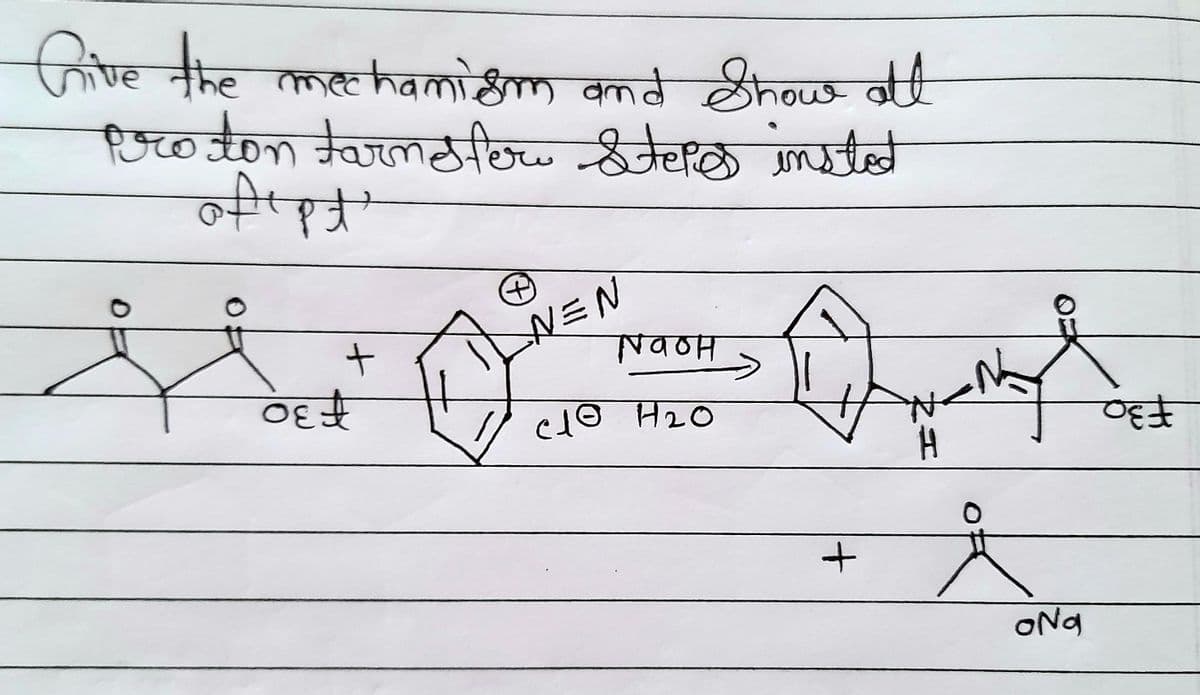 Give the mechanism and Show all
proton tarnsfer Steps insted
of 'pt'
O O O
⊕
N≡N
+ NaOH
N
OEt Cl⊖ H2O N OEt
H
O
+
ONa